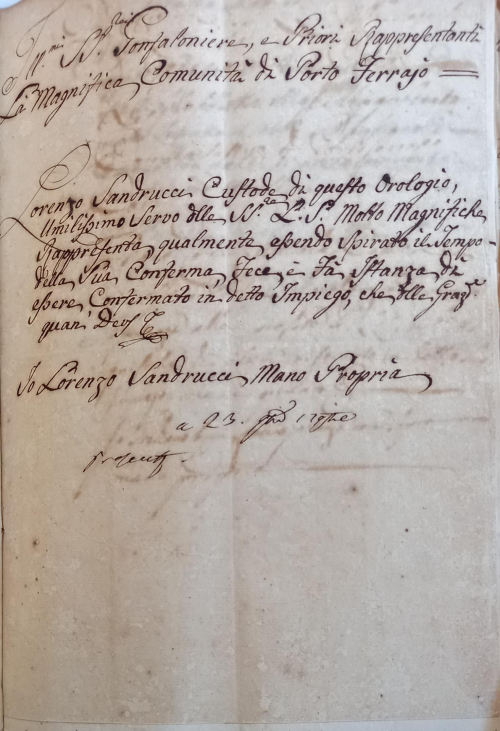 Ill.mi SS.ri Gonfaloniere, e Priori Rappresentanti
La Magnifica Comunità di Porto Ferrajo =
Lorenzo Sandrucci Custode di questo Orologio,
Umilissimo Servo dlle SS.rie L. S. Molto Magnifiche
Rappresenta, qualmente essendo spirato il Tempo
della Sua Conferma, Fece, e Fà Istanza di
essere Confermato in detto Impiego, che dlle Graz.e
quam Deus
Io Lorenzo Sandrucci Mano Propria
a 23.